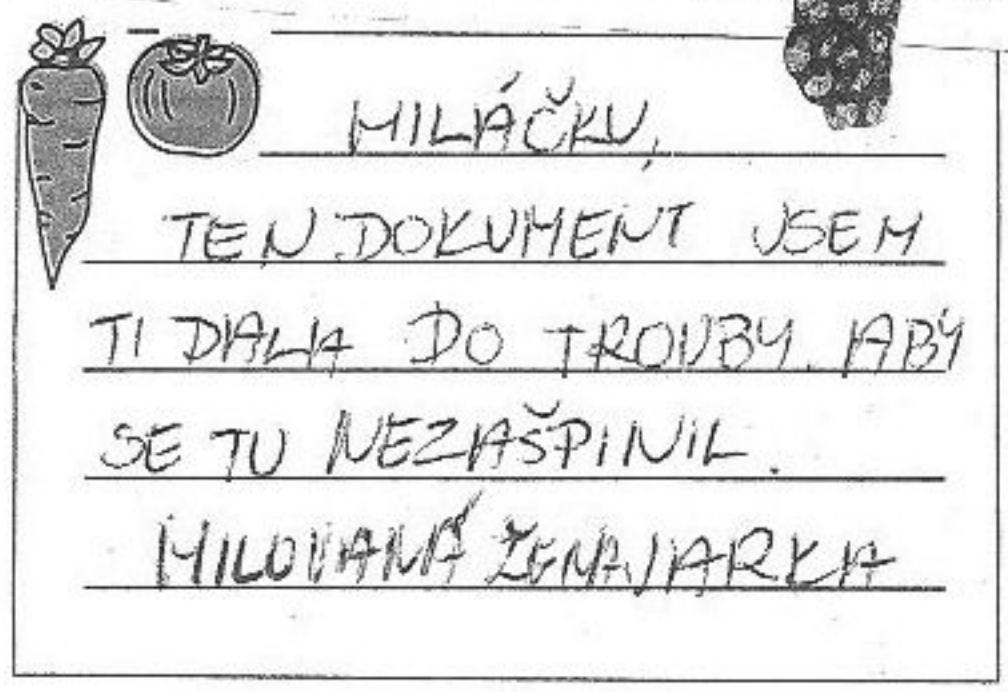 MILÁČKU,
TEN DOKUMENT JSEM
TI DALA DO TROUBY. ABY
SE TU NEZAŠPINIL.
MILOVANÁ ŽENA JARKA